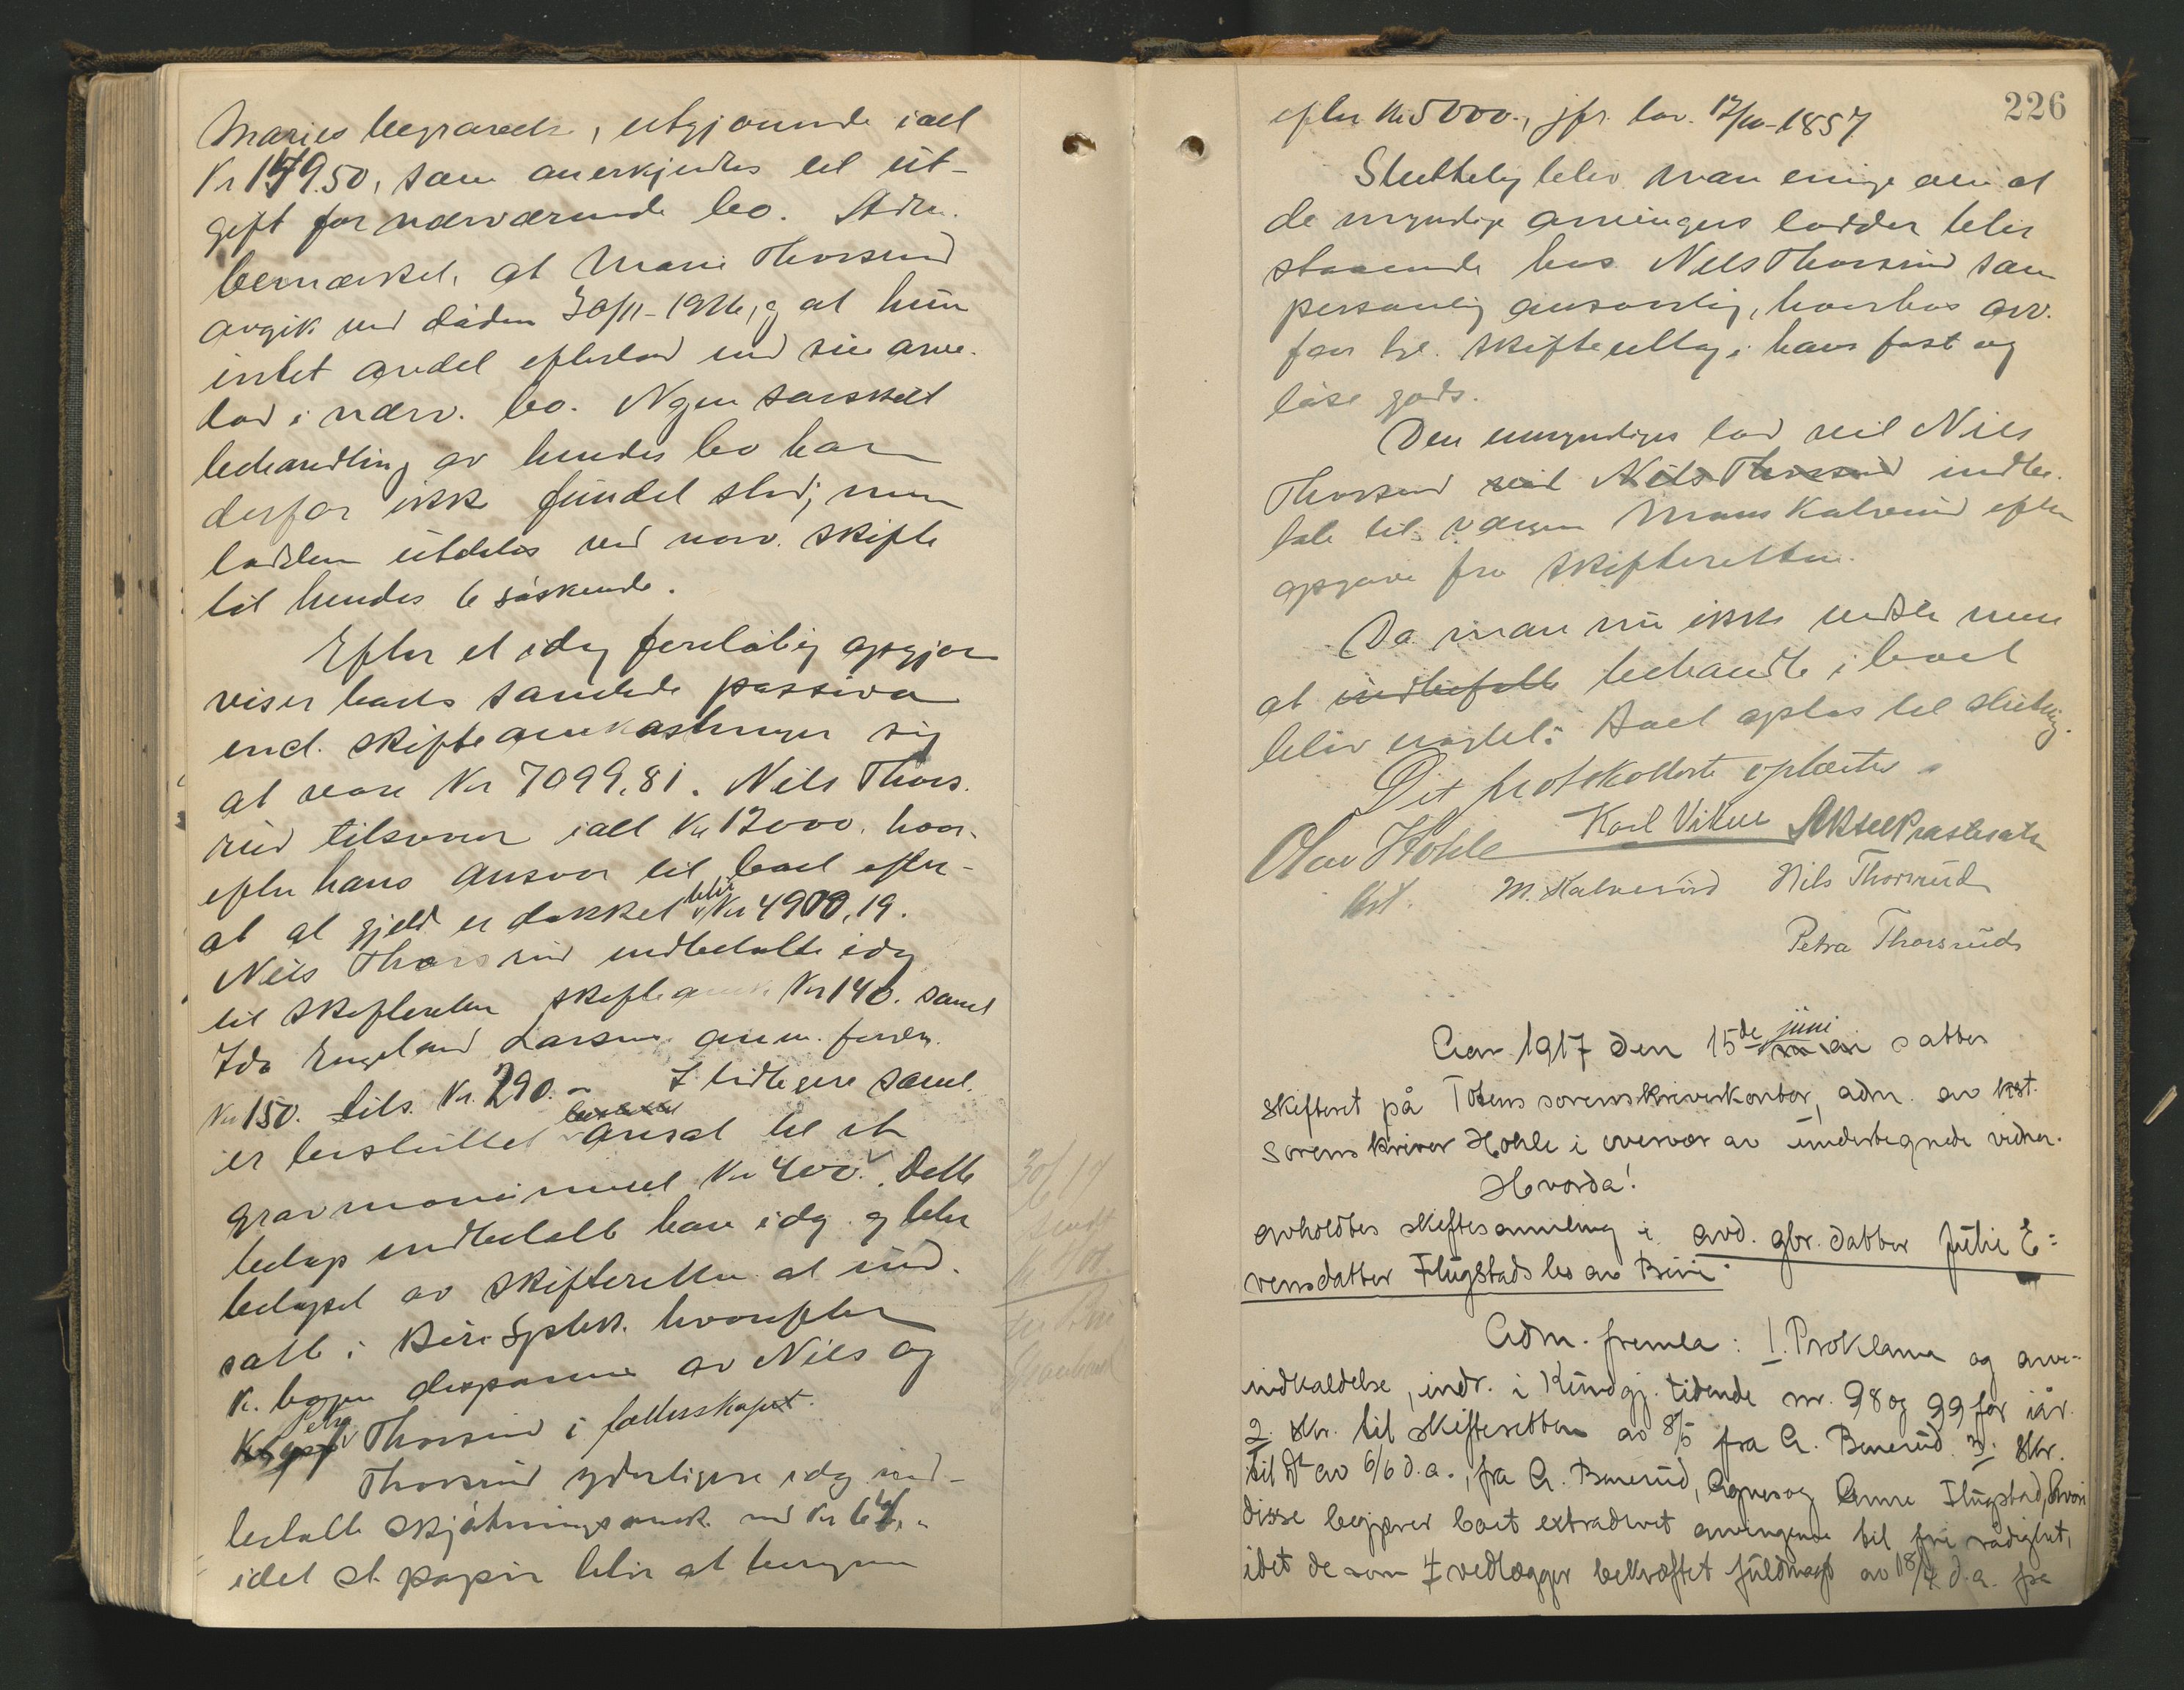 Maries begravelse, utgjørende ialt
Kr 149.50, som anerkjendtes til ut-
gift for nærværende bo. Adm.
bemærket, at Marie Thorsrud
avgik ved døden 30/11-1916, og at hun
intet andet efterlod end sin arve-
lod i nærv. bo. Ngen særskilt
behandling av hendes bo har
derfor ikke fundet sted; men
lodden utdeles ved nærv. skifte
til hendes 6 søskende.
Efter et idag foreløbig opgjør
viser boets samlede passiva
incl. skifteomkostninger sig
at være Kr 7099,81. Nils Thors-
rud tilsvarer ialt Kr 12000. hvor-
efter hans ansvar til boet efter-
at al gjeld er dækket blir Kr 4900,19.
Nils Thorsrud indbetalte idag
til skifteretten skifteomk. Kr 140. samt
Ida Engeland Larsens anm. fordr.
Kr 150. tils. Kr. 290.- I tidligere saml.
er besluttet ansat til et
gravmonument Kr 400. Dette
beløp indbetalt han idag og blir
beløpet av skifteretten at ind-
satte i Biri Spbk. hvorefter
k. bogen disponeres av Nils og
Petra Thorsrud i fællesskapet.
Thorsrud yderligere idag ind-
betalte skjøtningsomk. med Kr 64,-
idet st. papir blir at beregne
30/6 17
sendt
Kr 400.
til Biri
Sparebank
226
efter Kr 5000., jfr. lov. 12/10-1857
Sluttelig blev man enige om at
de myndige arvingers lodder blir
staaende hos Nils Thorsrud som
personlig ansvarlig, hvorhos arv.
faar tgl. skifteutlæg i hans fast og
løse gods.
Den umyndiges lod vil Nils
Thorsrud vil Nils Thorsrud indbe-
tale til værgen Mons Kalverud efter
opgave fra skifteretten.
Da man nu ikke vidste mere
at indbefatte behandle i boet
blev vedtat: Boet optas til slutning.
Det protokollerte oplæstes.
Olav Hohle Karl Vikne
kst. M. Kalverud Nils Thorsrud
Petra Thorsrud
Aar 1917 den 15de juni mai sattes
skifteret på Totens sorenskriverkontor, adm. av kst.
sorenskriver Hohle i overvær av undertegnede vidner.
Hvorda!
avholdtes skiftesamling i avd. gbr. datter Julie E=
vensdatter Flugstads bo av Biri.
Adm. fremla: 1. Proklama og arve-
indkaldelse, indr. i Kundgj. tidende nr. 98 og 99 for iår.
2. Skr. til skifteretten av 8/5 fra A. Bmerud. 3. Skr.
til dt av 6/6 d.a., fra A. Bmerud, Agnes og Anne Flugstad, hvori
disse begjærer boet extradert arvingene til fri rådighet,
idet de som 4 vedlægger bekræftet fuldmagt av 18/4 d.a. fra